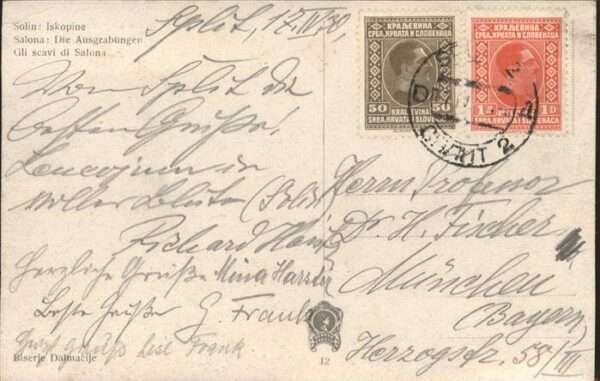 Solin: Iskopine
Salona: Die Ausgrabungen
Gli scavi di Salona
Split, 17.IV.30,
Von Split die
besten Grüße!
Leucojum in
voller Blüte (Solin)
Richard
Herzliche Grüße Mina
Beste Grüße G. Frank
Gruß Lese Frank
Biserje Dalmacije
12
КРАЉЕВИНА
СРБА, ХРВАТА И СЛОВЕНАЦА
50 KRALJEVINA 50
SRBA, HRVATA I SLOVENACA
КРАЉЕВИНА
СРБА, ХРВАТА И СЛОВЕНАЦА
1 D
SRBA, HRVATA I SLOVENACA
2
Herrn Professor
Dr. H. Fischer
München
(Bayern)
Herzogstr. 58/III